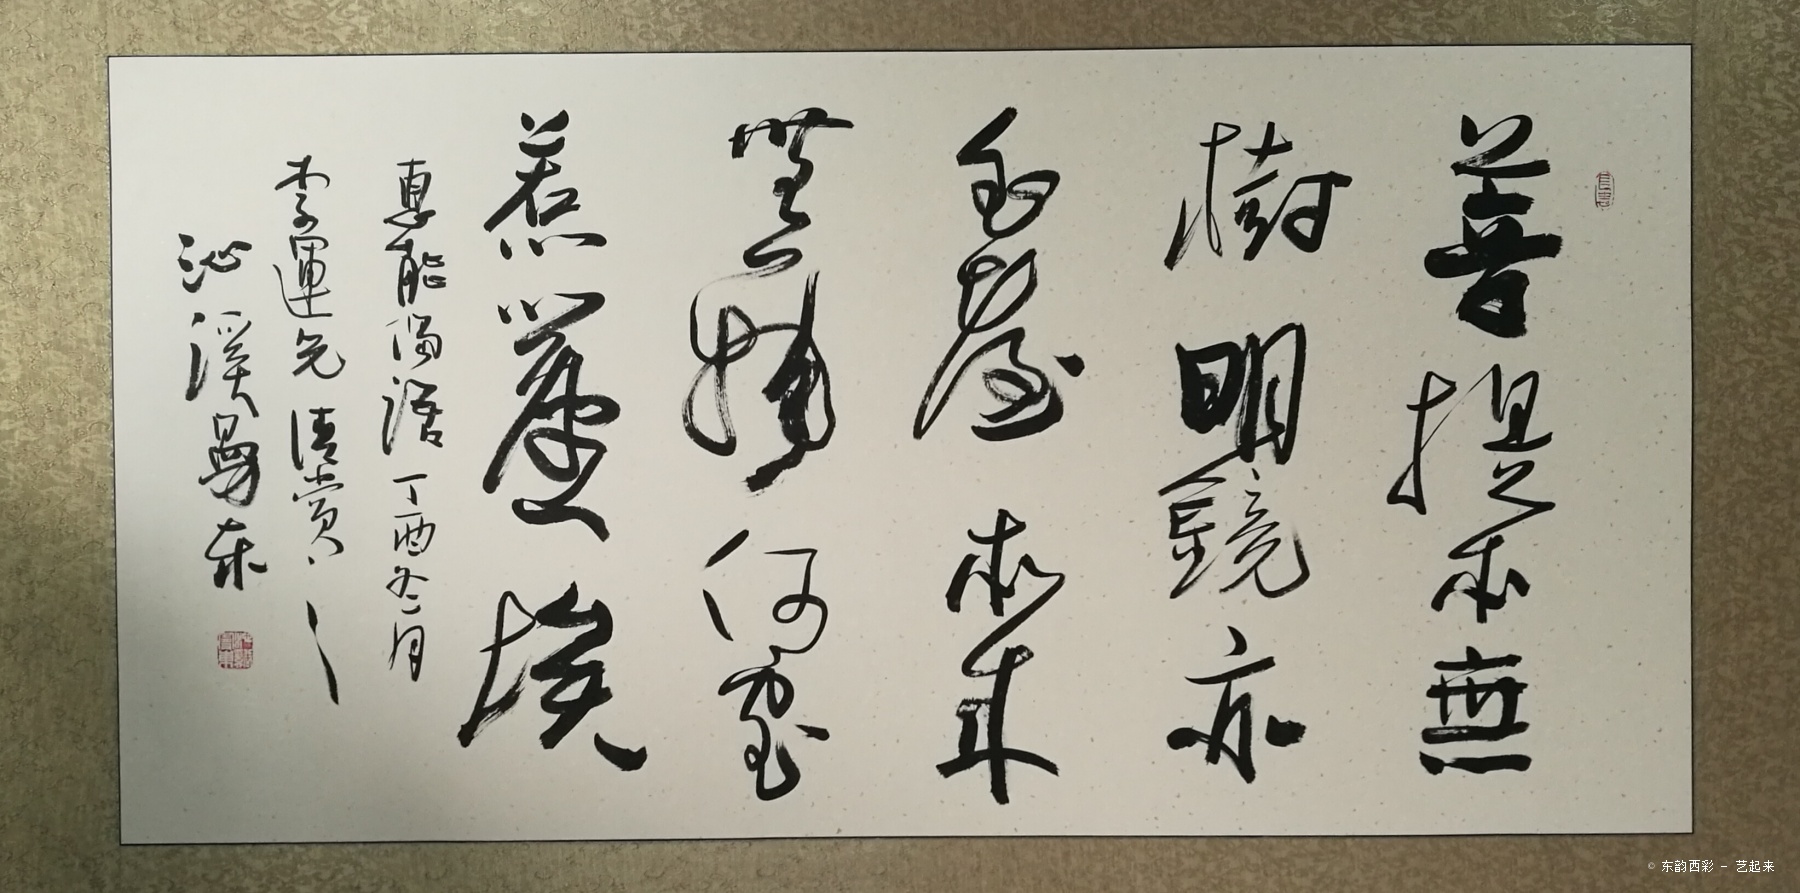 菩提本無
樹明鏡亦
非臺本來
無一物何處
惹塵埃
惠能偈語丁酉冬月
李運先清賞
沁溪
© 东韵西彩 - 艺起来